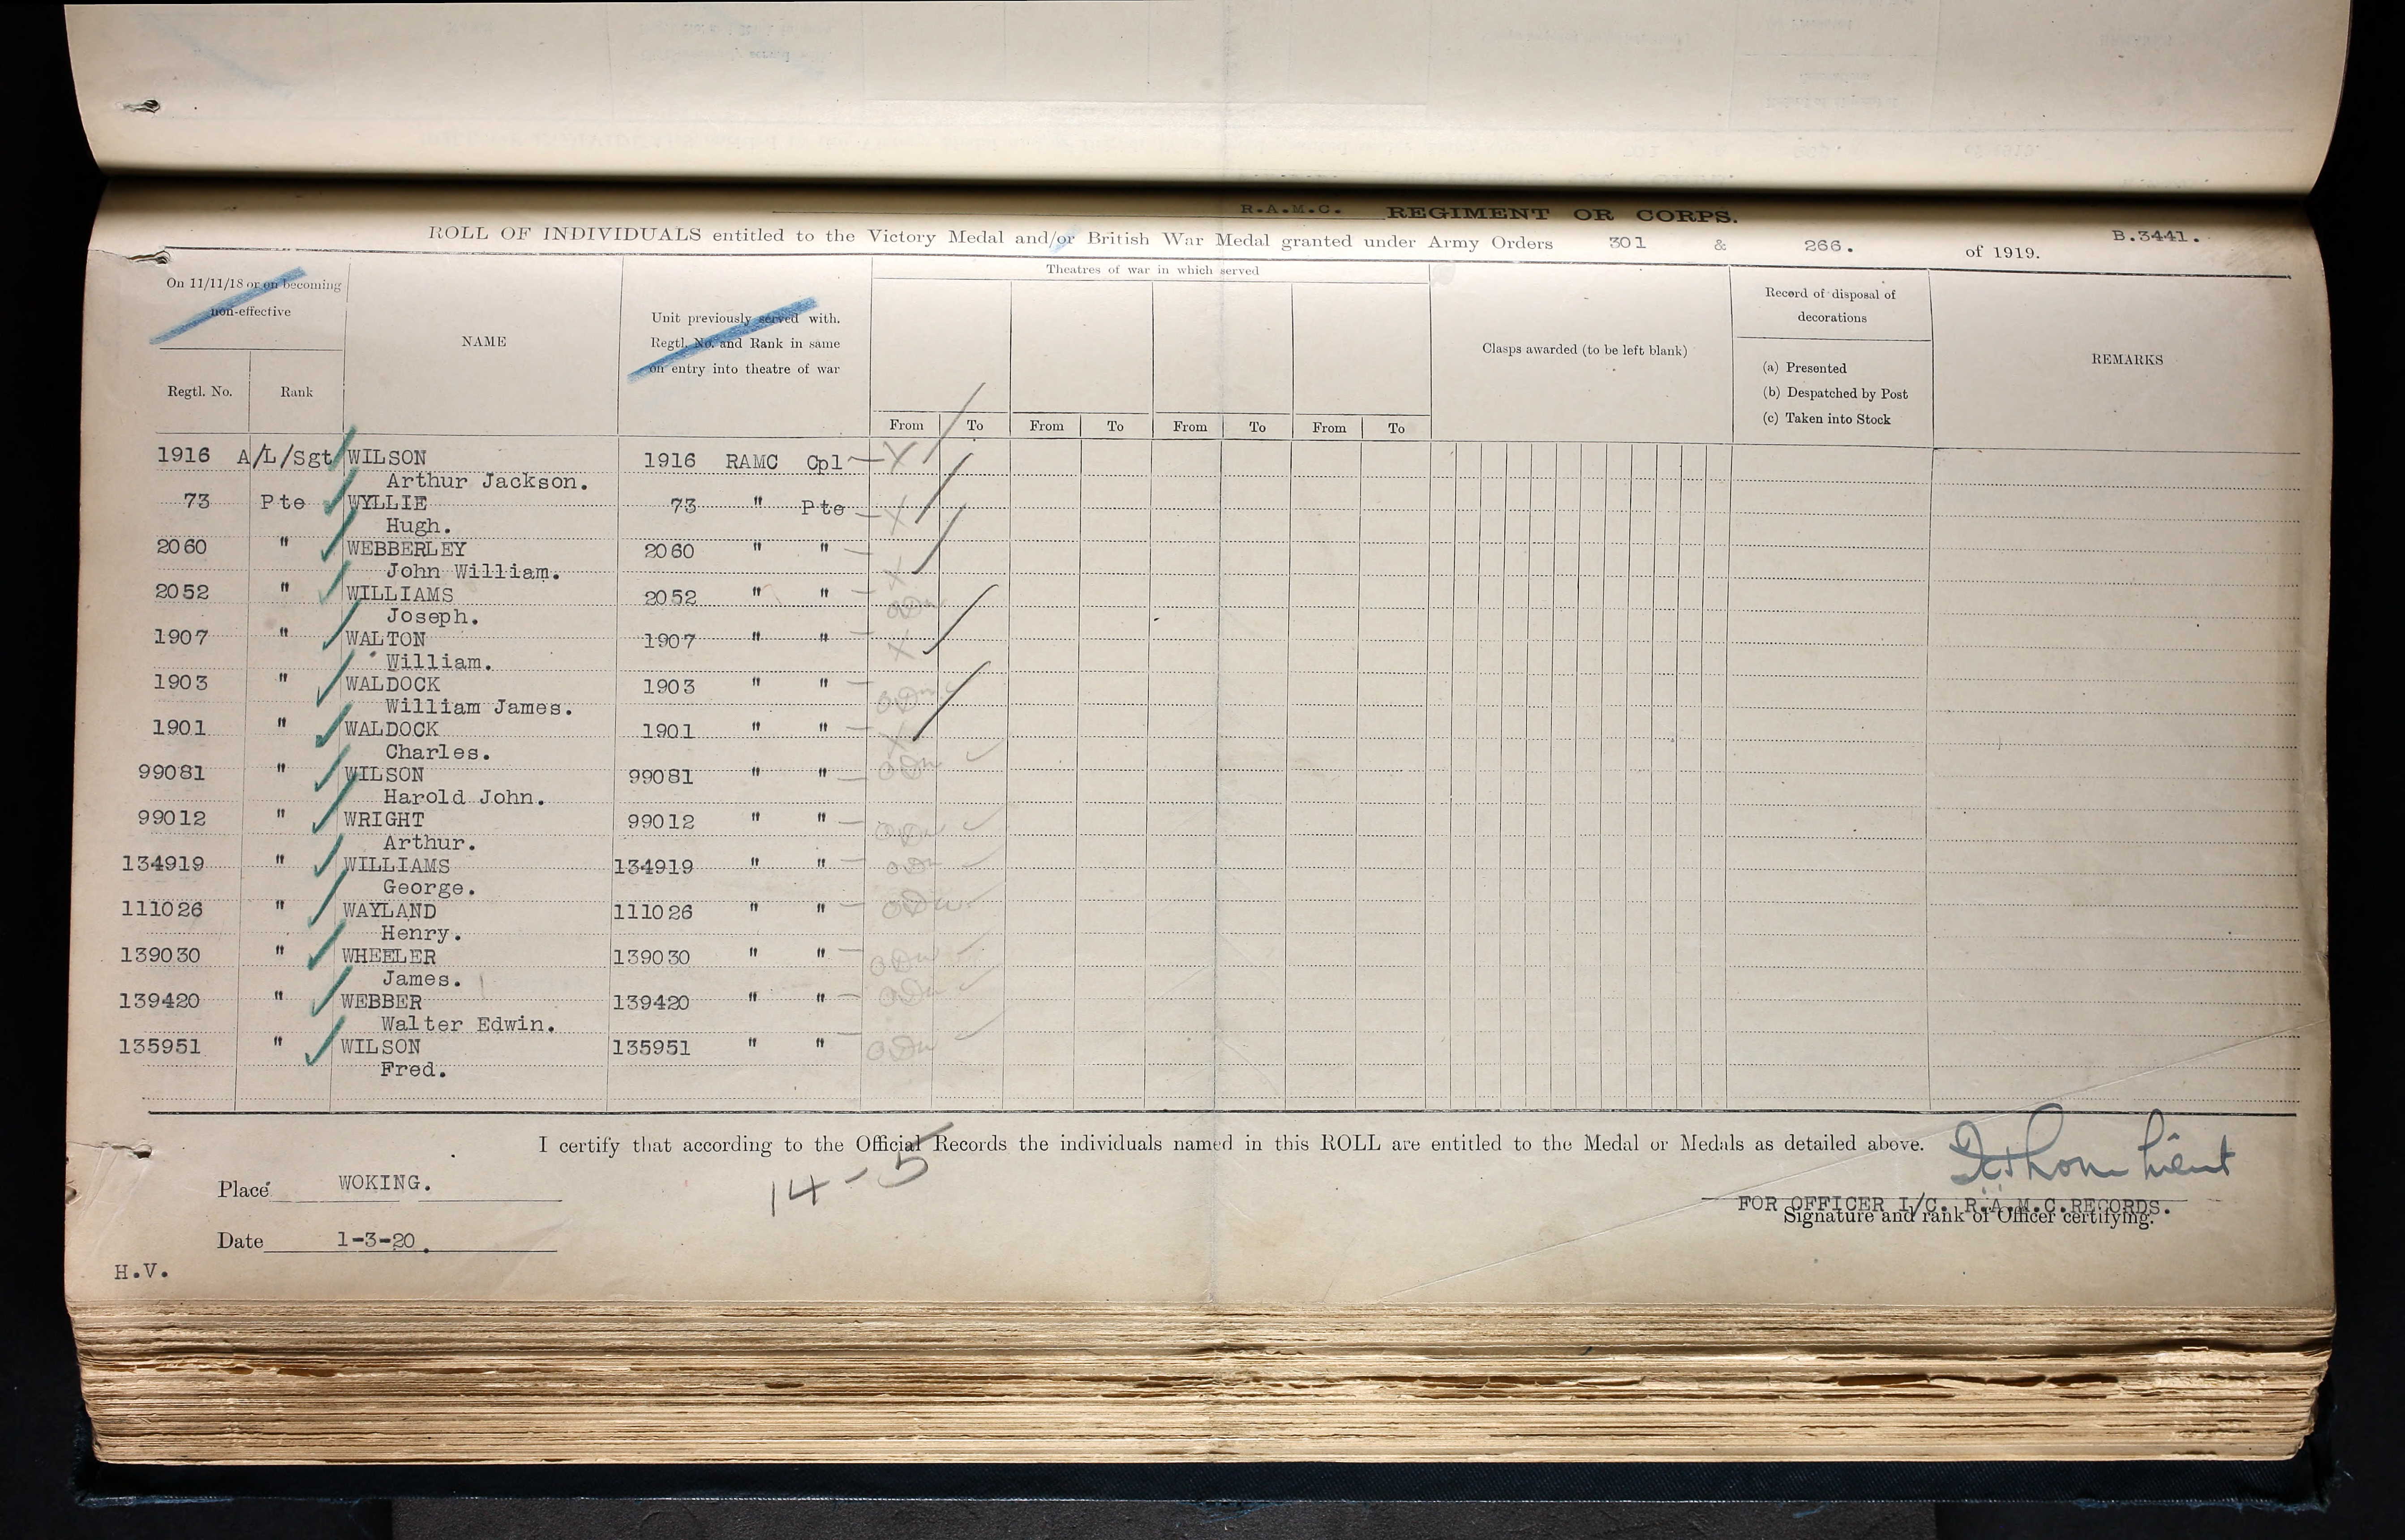 R.A.M.C. REGIMENT OR CORPS.
ROLL OF INDIVIDUALS entitled to the Victory Medal and/or British War Medal granted under Army Orders 301 & 266. of 1919.
B.3441.
On 11/11/18 or on becoming
non-effective
Regtl. No.
Rank
NAME
Unit previously served with.
Regtl. No. and Rank in same
on entry into theatre of war
Theatres of war in which served
From To From To From To From To
Clasps awarded (to be left blank)
Record of disposal of
decorations
(a) Presented
(b) Despatched by Post
(c) Taken into Stock
REMARKS
1916 A/L/Sgt WILSON 1916 RAMC Cpl X
Arthur Jackson.
73 Pte WYLLIE 73 " Pte X
Hugh.
2060 " WEBBERLEY 2060 " "
John William. X
2052 " WILLIAMS 2052 " "
Joseph.
1907 " WALTON 1907 " " X
William.
1903 " WALDOCK 1903 " "
William James.
1901 " WALDOCK 1901 " " X
Charles.
99081 " WILSON 99081 " "
Harold John.
99012 " WRIGHT 99012 " "
Arthur.
134919 " WILLIAMS 134919 " "
George.
111026 " WAYLAND 111026 " "
Henry.
139030 " WHEELER 139030 " "
James.
139420 " WEBBER 139420 " "
Walter Edwin.
135951 " WILSON 135951 " "
Fred.
I certify that according to the Official Records the individuals named in this ROLL are entitled to the Medal or Medals as detailed above.
14-5
Lieut
Place WOKING.
FOR OFFICER I/C. R.A.M.C.RECORDS.
Signature and rank of Officer certifying.
Date 1-3-20.
H.V.